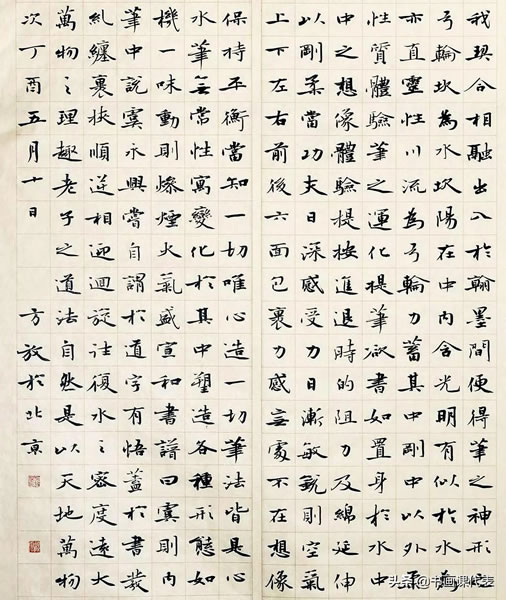 我契合相融出入於翰墨間便得筆之神形
弓輪坎為水坎陽在中內含光明有似於水為
亦直靈性川流為弓輪力蓄其中剛中以外柔
性質體驗筆之運化提筆欲書如置身於水中
中之想像體驗提按進退時的阻力及綿延伸
以剛柔當功夫日深感受力日漸敏銳則空氣
上下左右前後六面已裹力感處不在想像
保持平衡當知一切唯心造一切筆法皆是心
水筆無常性寓變化於其中塑造各種形態如
機一味動則煙火氣盛宣和書譜曰虞則內
筆中說虞永興嘗自謂於道字有悟蓋於書
糺纏裹挾順逆相迎迴旋往復水之容度遠大
萬物之理趣老子之道法自然是以天地萬物
次丁酉五月十日 方放於北京
头条 @书画课代表